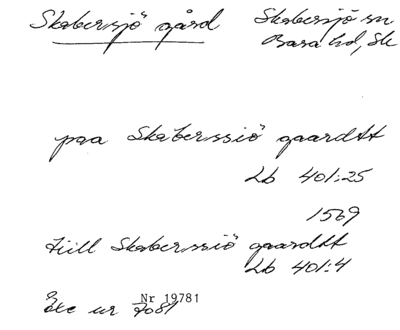 Skabersjö gård
Skabersjö sn
Bara hd, Sk
paa Skaberssiö gaardtt
Lb 401:25
1569
tiill Skaberssiö gaardtt
Lb 401:4
Exc ur
Nr 19781
9081